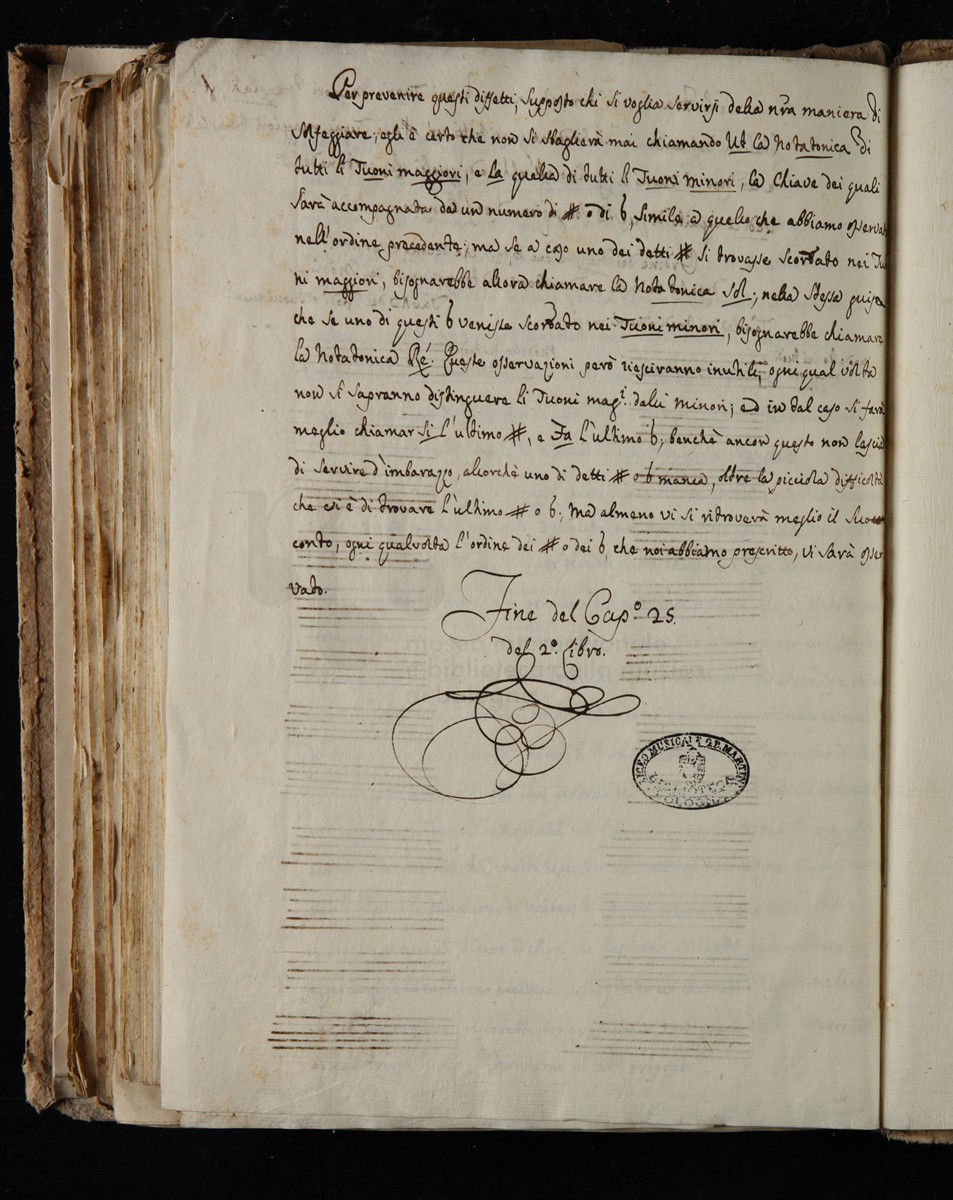 Per prevenire questi diffetti, supposto chi si voglia servirsi della nr̃a maniera di
solfeggiare, egli è certo che non si sbaglierà mai chiamando Ut la Nota tonica di
tutti li Tuoni maggiori, e La quella di tutti li Tuoni minori, la Chiave dei quali
sarà accompagnata da un numero di # o di b, simile a quello che abbiamo osservat
nell'ordine precedente; ma se a caso uno dei detti # si trovasse scordato nei Tu
ni maggiori, bisognarebbe allora chiamare la Nota tonica sol; nella stessa guisa
che se uno di questi b venisse scordato nei Tuoni minori, bisognarebbe chiamare
la Nota tonica Ré. Queste osservazioni però riesciranno inutili, ogni qual volta
non si sapranno distinguere li Tuoni mag.i dalli minori; ed in tal caso si farà
meglio chiamar si l'ultimo #, e Fa l'ultimo b; benchè ancor questo non lascia
di servire d'imbarazzo, allorchè uno di detti # o b manca, oltre la picciola difficoltà
che vi è di trovare l'ultimo # o b; ma almeno vi si ritroverà meglio il suo
conto, ogni qualvolta l'ordine dei # o dei b, che noi abbiamo prescritto, vi sarà osser
vato.
Fine del Cap.o 25.
del 2.o Libro.
LICEO MUSICALE G.B. MARTINI
BIBLIOTECA
BOLOGNA